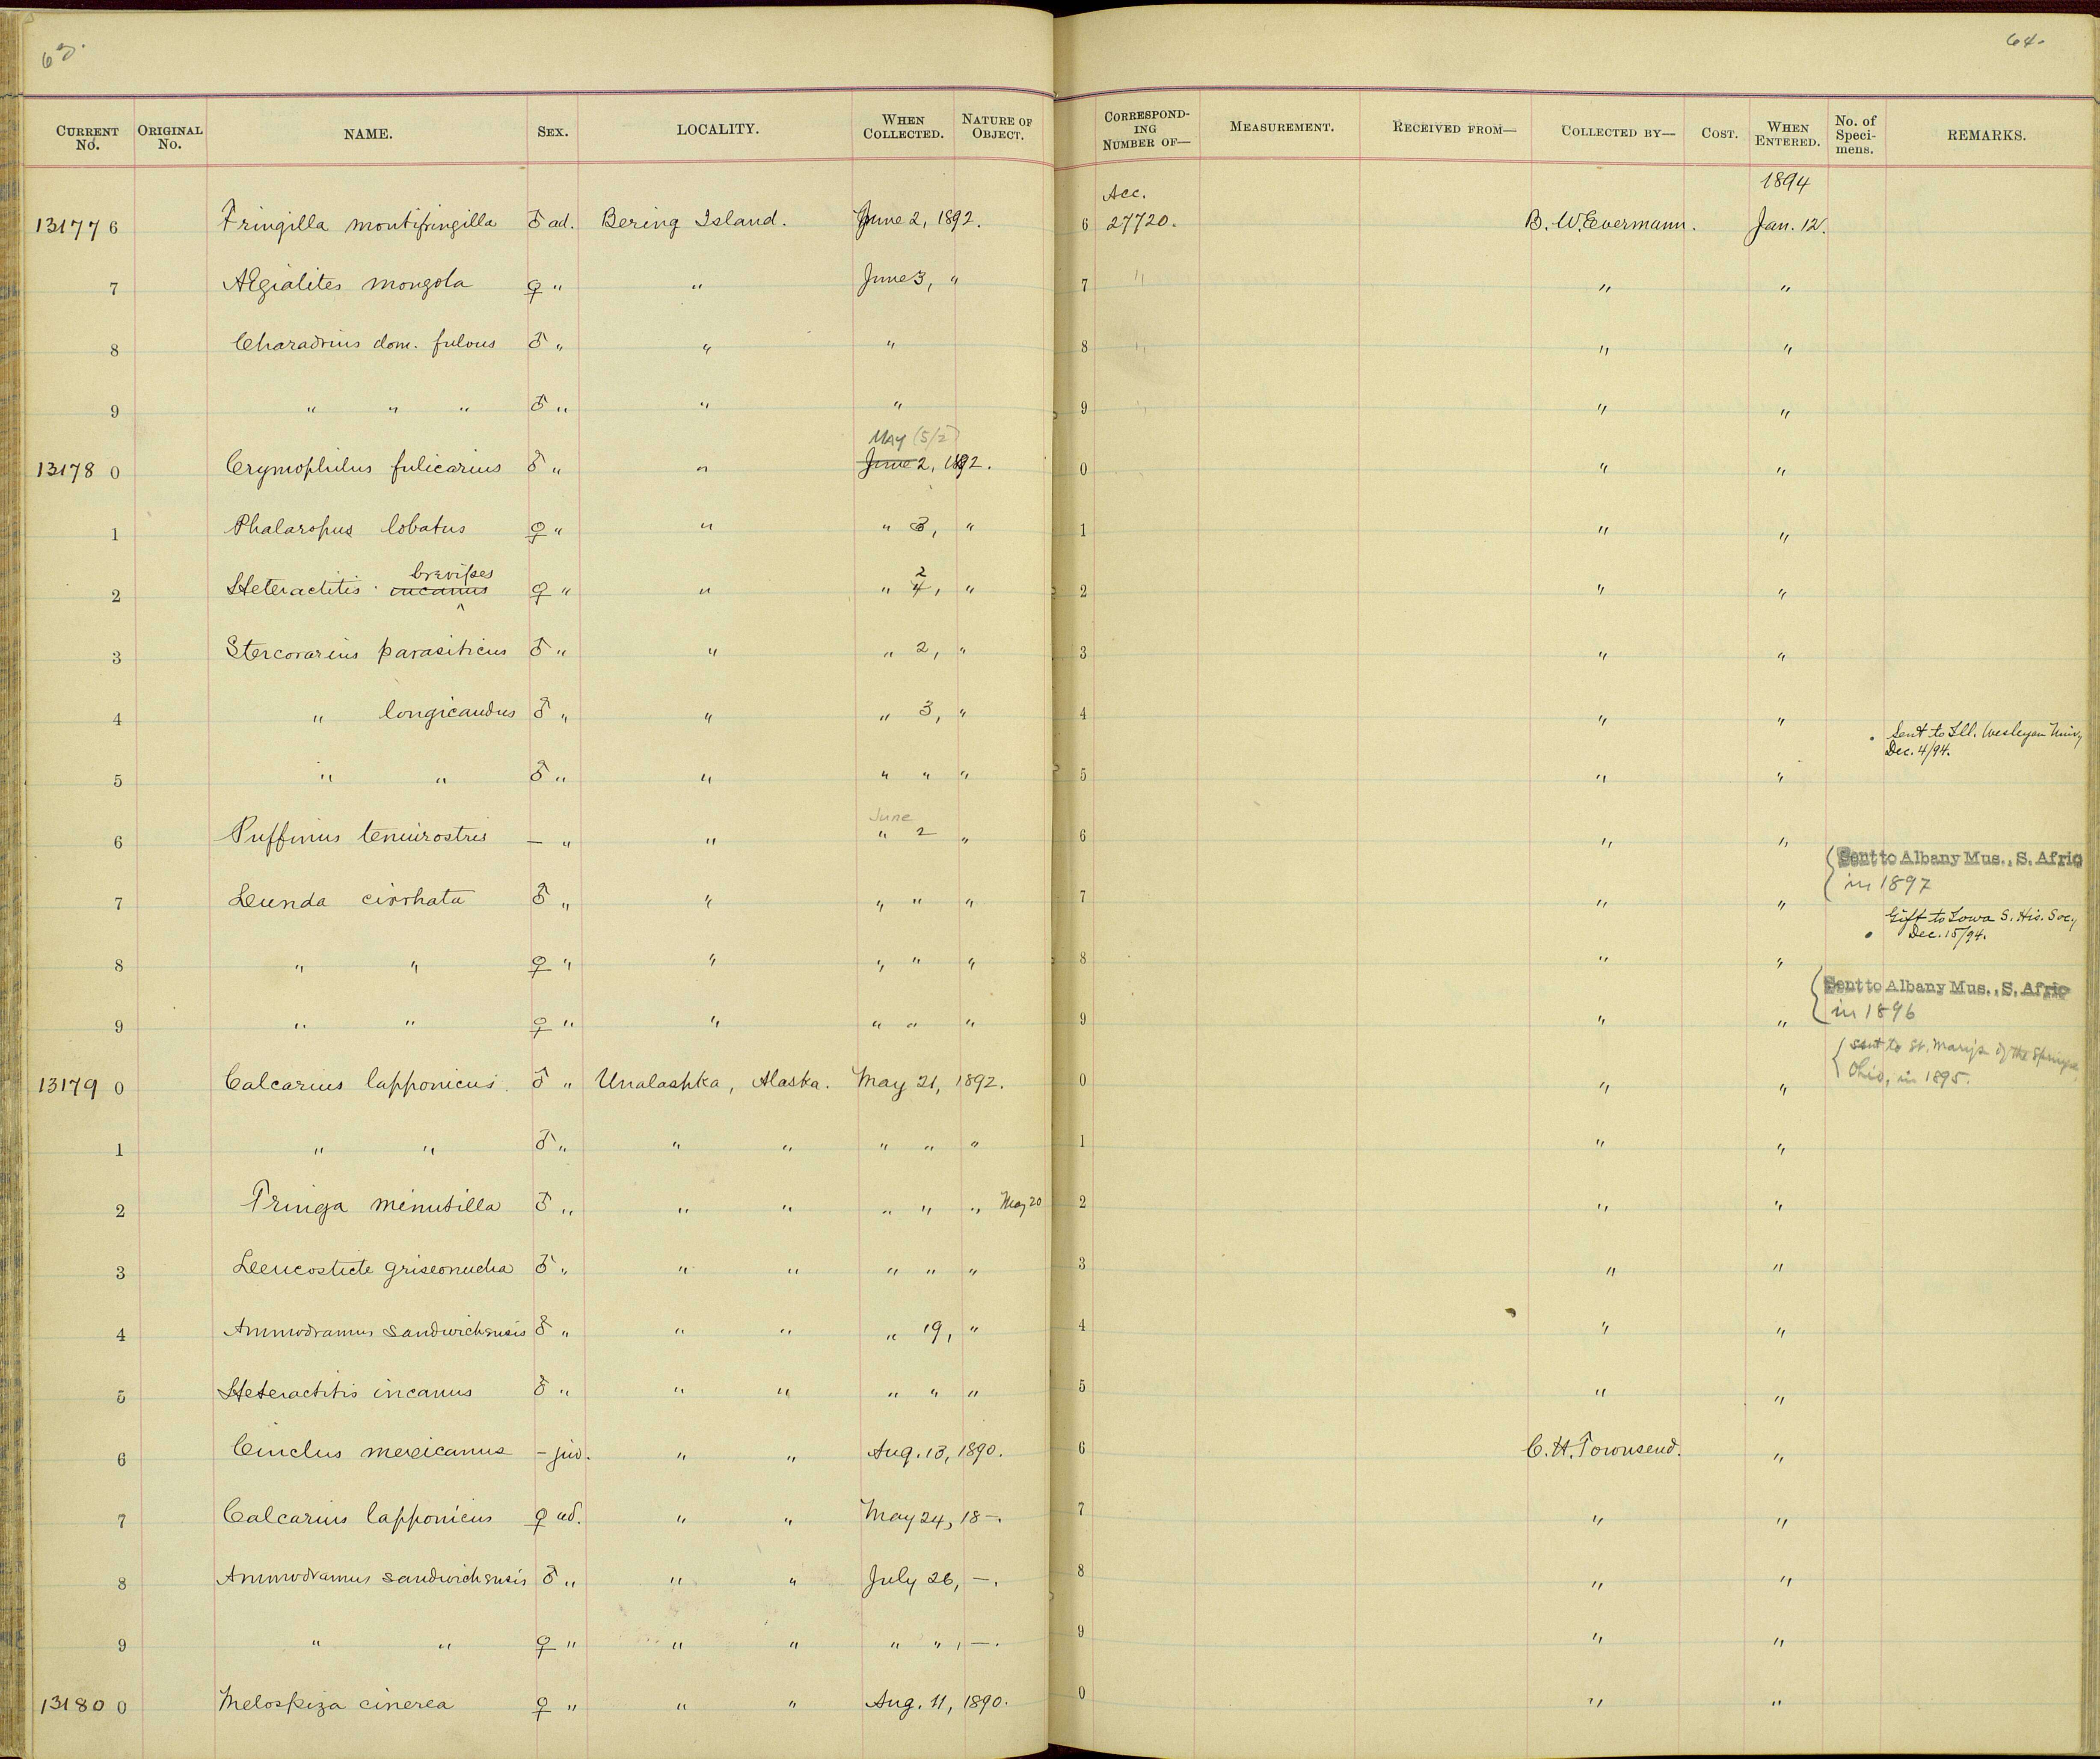 63.
64.
CURRENT No. ORIGINAL No. NAME. SEX. LOCALITY. WHEN COLLECTED. NATURE OF OBJECT. CORRESPONDING NUMBER OF— MEASUREMENT. RECEIVED FROM— COLLECTED BY— COST. WHEN ENTERED. No. of Specimens. REMARKS.
Acc. 1894
131776 Fringilla montifringilla ♂ ad. Bering Island. June 2, 1892. 6 27720. B. W. Evermann. Jan. 12.
7 Ægialites mongola ♀ " " June 3, " 7 " " "
8 Charadrius dom. fulvus ♂ " " " 8 " " "
9 " " " ♂ " " " 9 " " "
May (5/2)
131780 Crymophilus fulicarius ♂ " " June 2, 1892. 0 " "
1 Phalaropus lobatus ♀ " " " 3, " 1 " "
brevipes 2
2 Heteractitis incanus ♀ " " " 4, " 2 " "
3 Stercorarius parasiticus ♂ " " " 2, " 3 " "
4 " longicaudus ♂ " " " 3, " 4 " "
Sent to Ill. Wesleyan Univ.
Dec. 4/94.
5 " " ♂ " " " " " 5 " "
June
6 Puffinus tenuirostris – " " " 2 " 6 " "
Sent to Albany Mus., S. Afric
in 1897
7 Lunda cirrhata ♂ " " " " " 7 " "
Gift to Iowa S. His. Soc.
Dec. 15/94.
8 " " ♀ " " " " " 8 " "
Sent to Albany Mus., S. Afric
in 1896
9 " " ♀ " " " " " 9 " "
sent to St. Mary's of the Springs,
Ohio, in 1895.
131790 Calcarius lapponicus. ♂ " Unalashka, Alaska. May 21, 1892. 0 " "
1 " " ♂ " " " " " " 1 " "
2 Tringa minutilla ♂ " " " " " " May 20 2 " "
3 Leucosticte griseonucha ♂ " " " " " " 3 " "
4 Ammodramus sandwichensis ♂ " " " " 19, " 4 " "
5 Heteractitis incanus ♂ " " " " " " 5 " "
6 Cinclus mexicanus – juv. " " Aug. 13, 1890. 6 C. H. Townsend. "
7 Calcarius lapponicus ♀ ad. " " May 24, 18–. 7 " "
8 Ammodramus sandwichensis ♂ " " " July 26, –. 8 " "
9 " " ♀ " " " " ", –. 9 " "
131800 Melospiza cinerea ♀ " " " Aug. 11, 1890. 0 " "